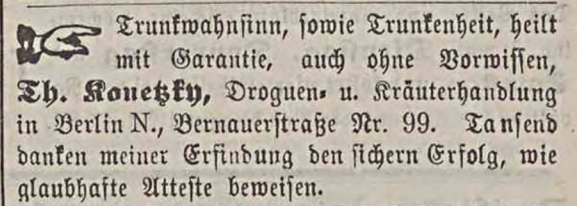 Trunkwahnsinn, sowie Trunkenheit, heilt
mit Garantie, auch ohne Vorwissen,
Th. Konetzky, Droguen- u. Kräuterhandlung
in Berlin N., Bernauerstraße Nr. 99. Tansend
danken meiner Erfindung den sichern Erfolg, wie
glaubhafte Atteste beweisen.